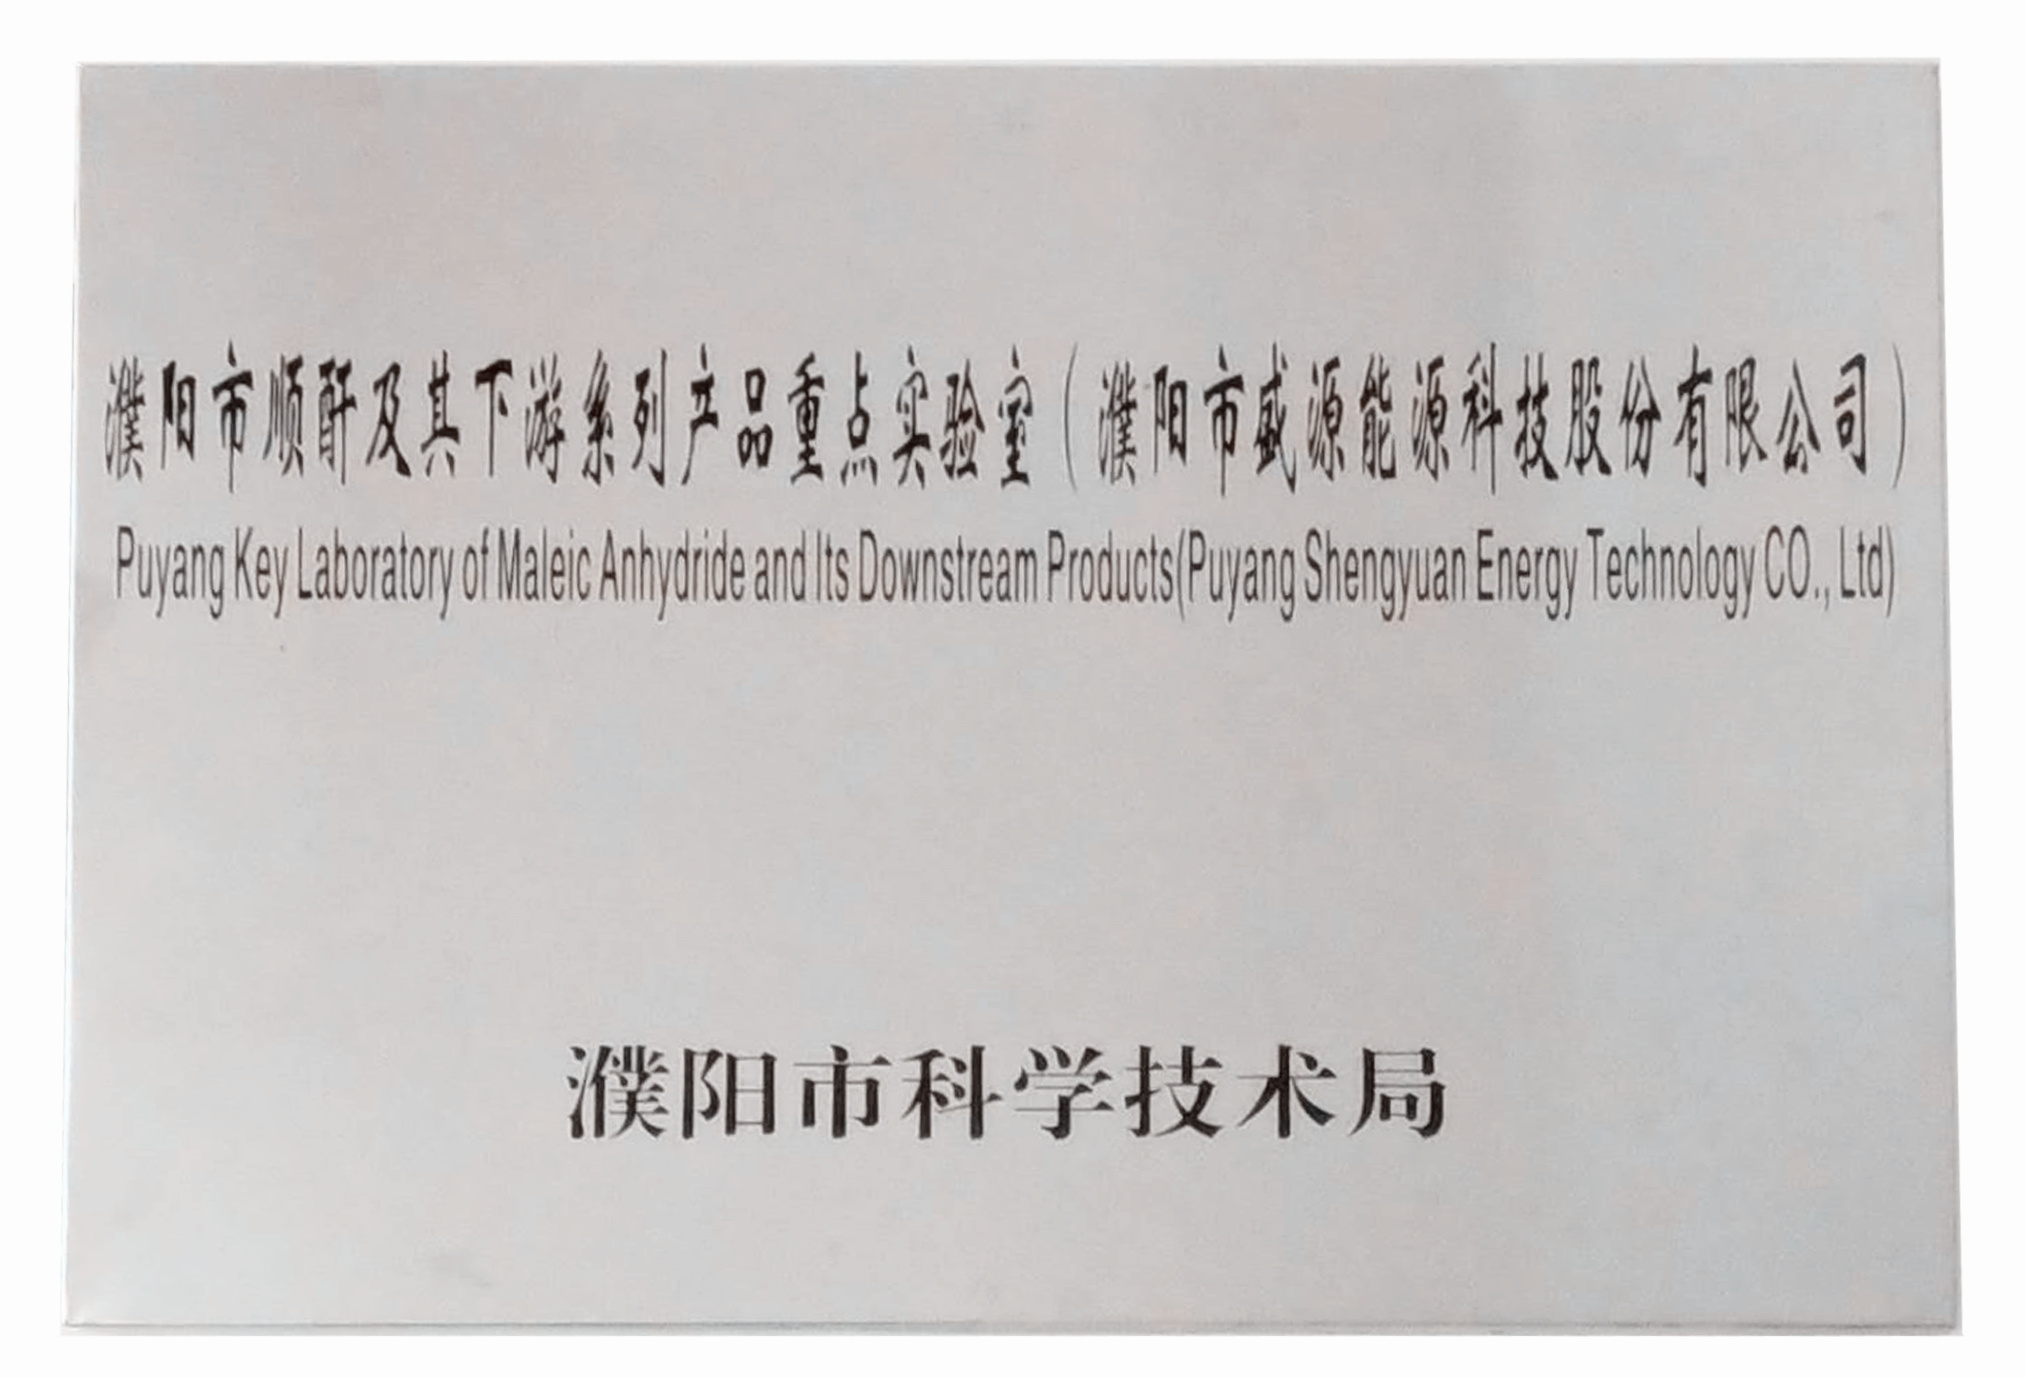 濮阳市顺酐及其下游系列产品重点实验室（濮阳市盛源能源科技股份有限公司）
Puyang Key Laboratory of Maleic Anhydride and Its Downstream Products(Puyang Shengyuan Energy Technology CO., Ltd)
濮阳市科学技术局